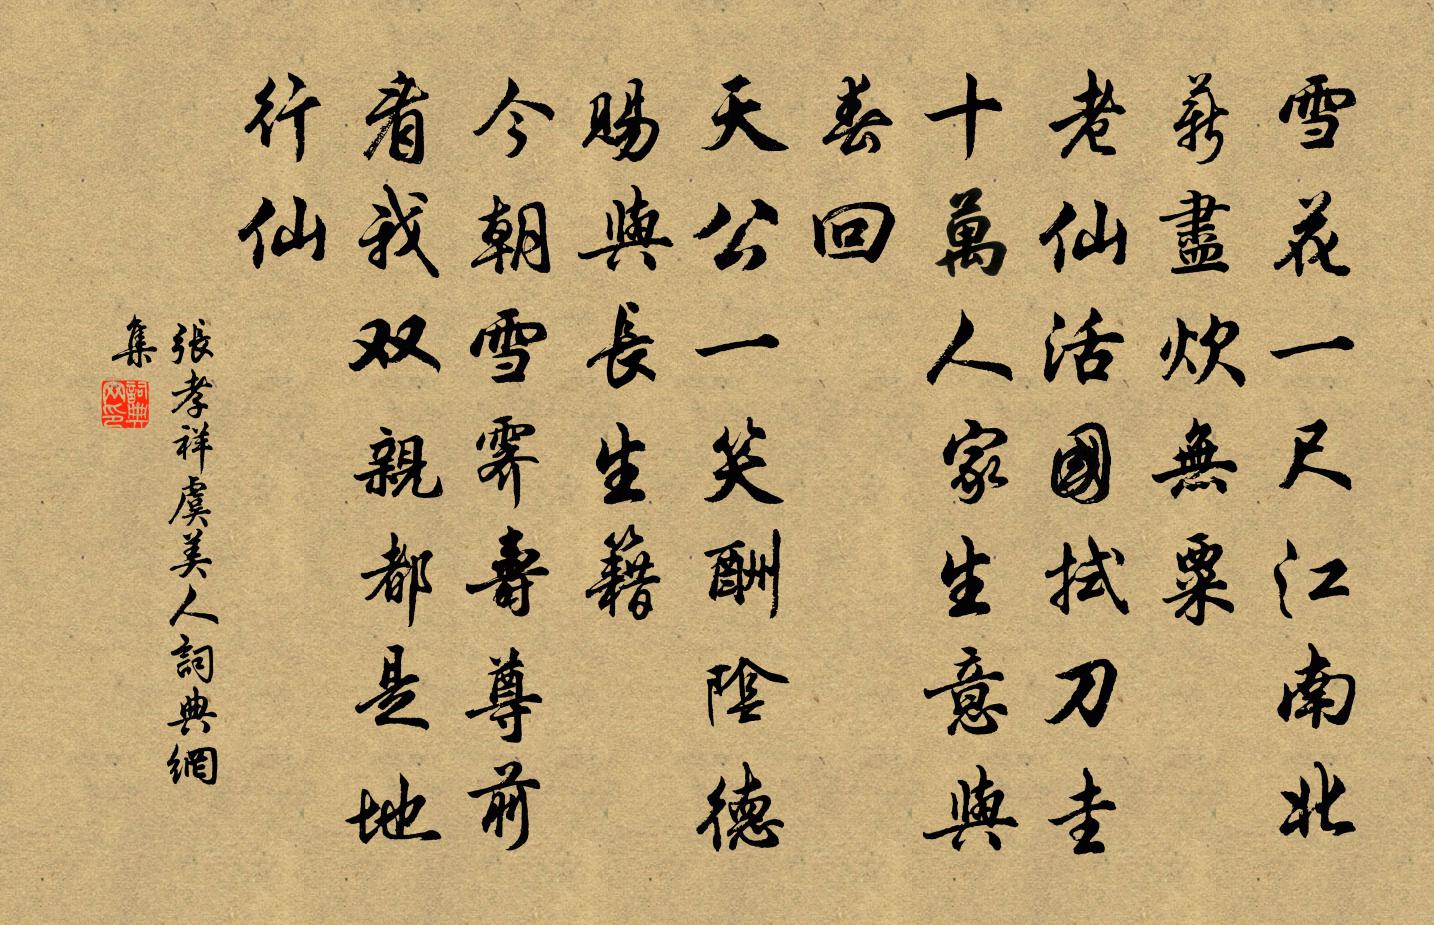 雪花一尺江南北
薪盡炊無粟
老仙活國拭刀圭
十萬人家生意與
春回
天公一笑酬陰德
賜與長生籍
今朝雪霽壽尊前
看我双親都是地
行仙
張孝祥虞美人詞典網
集
詞典網印